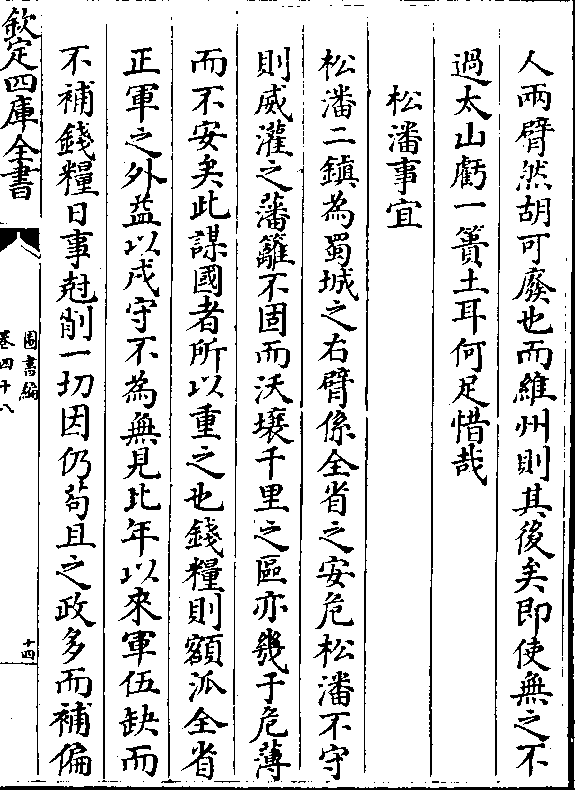 人兩臂然胡可廢也而維州則其後矣即使無之不
過太山虧一簣土耳何足惜哉
松潘事宜
松潘二鎮為蜀城之右臂係全省之安危松潘不守
則威灌之藩籬不固而沃壤千里之區亦幾于危薄
而不安矣此謀國者所以重之也錢糧則額派全省
正軍之外益以戍守不為無見比年以來軍伍缺而
不補錢糧日事尅削一切因仍苟且之政多而補偏
欽定四庫全書
圖書編
卷四十八
十四